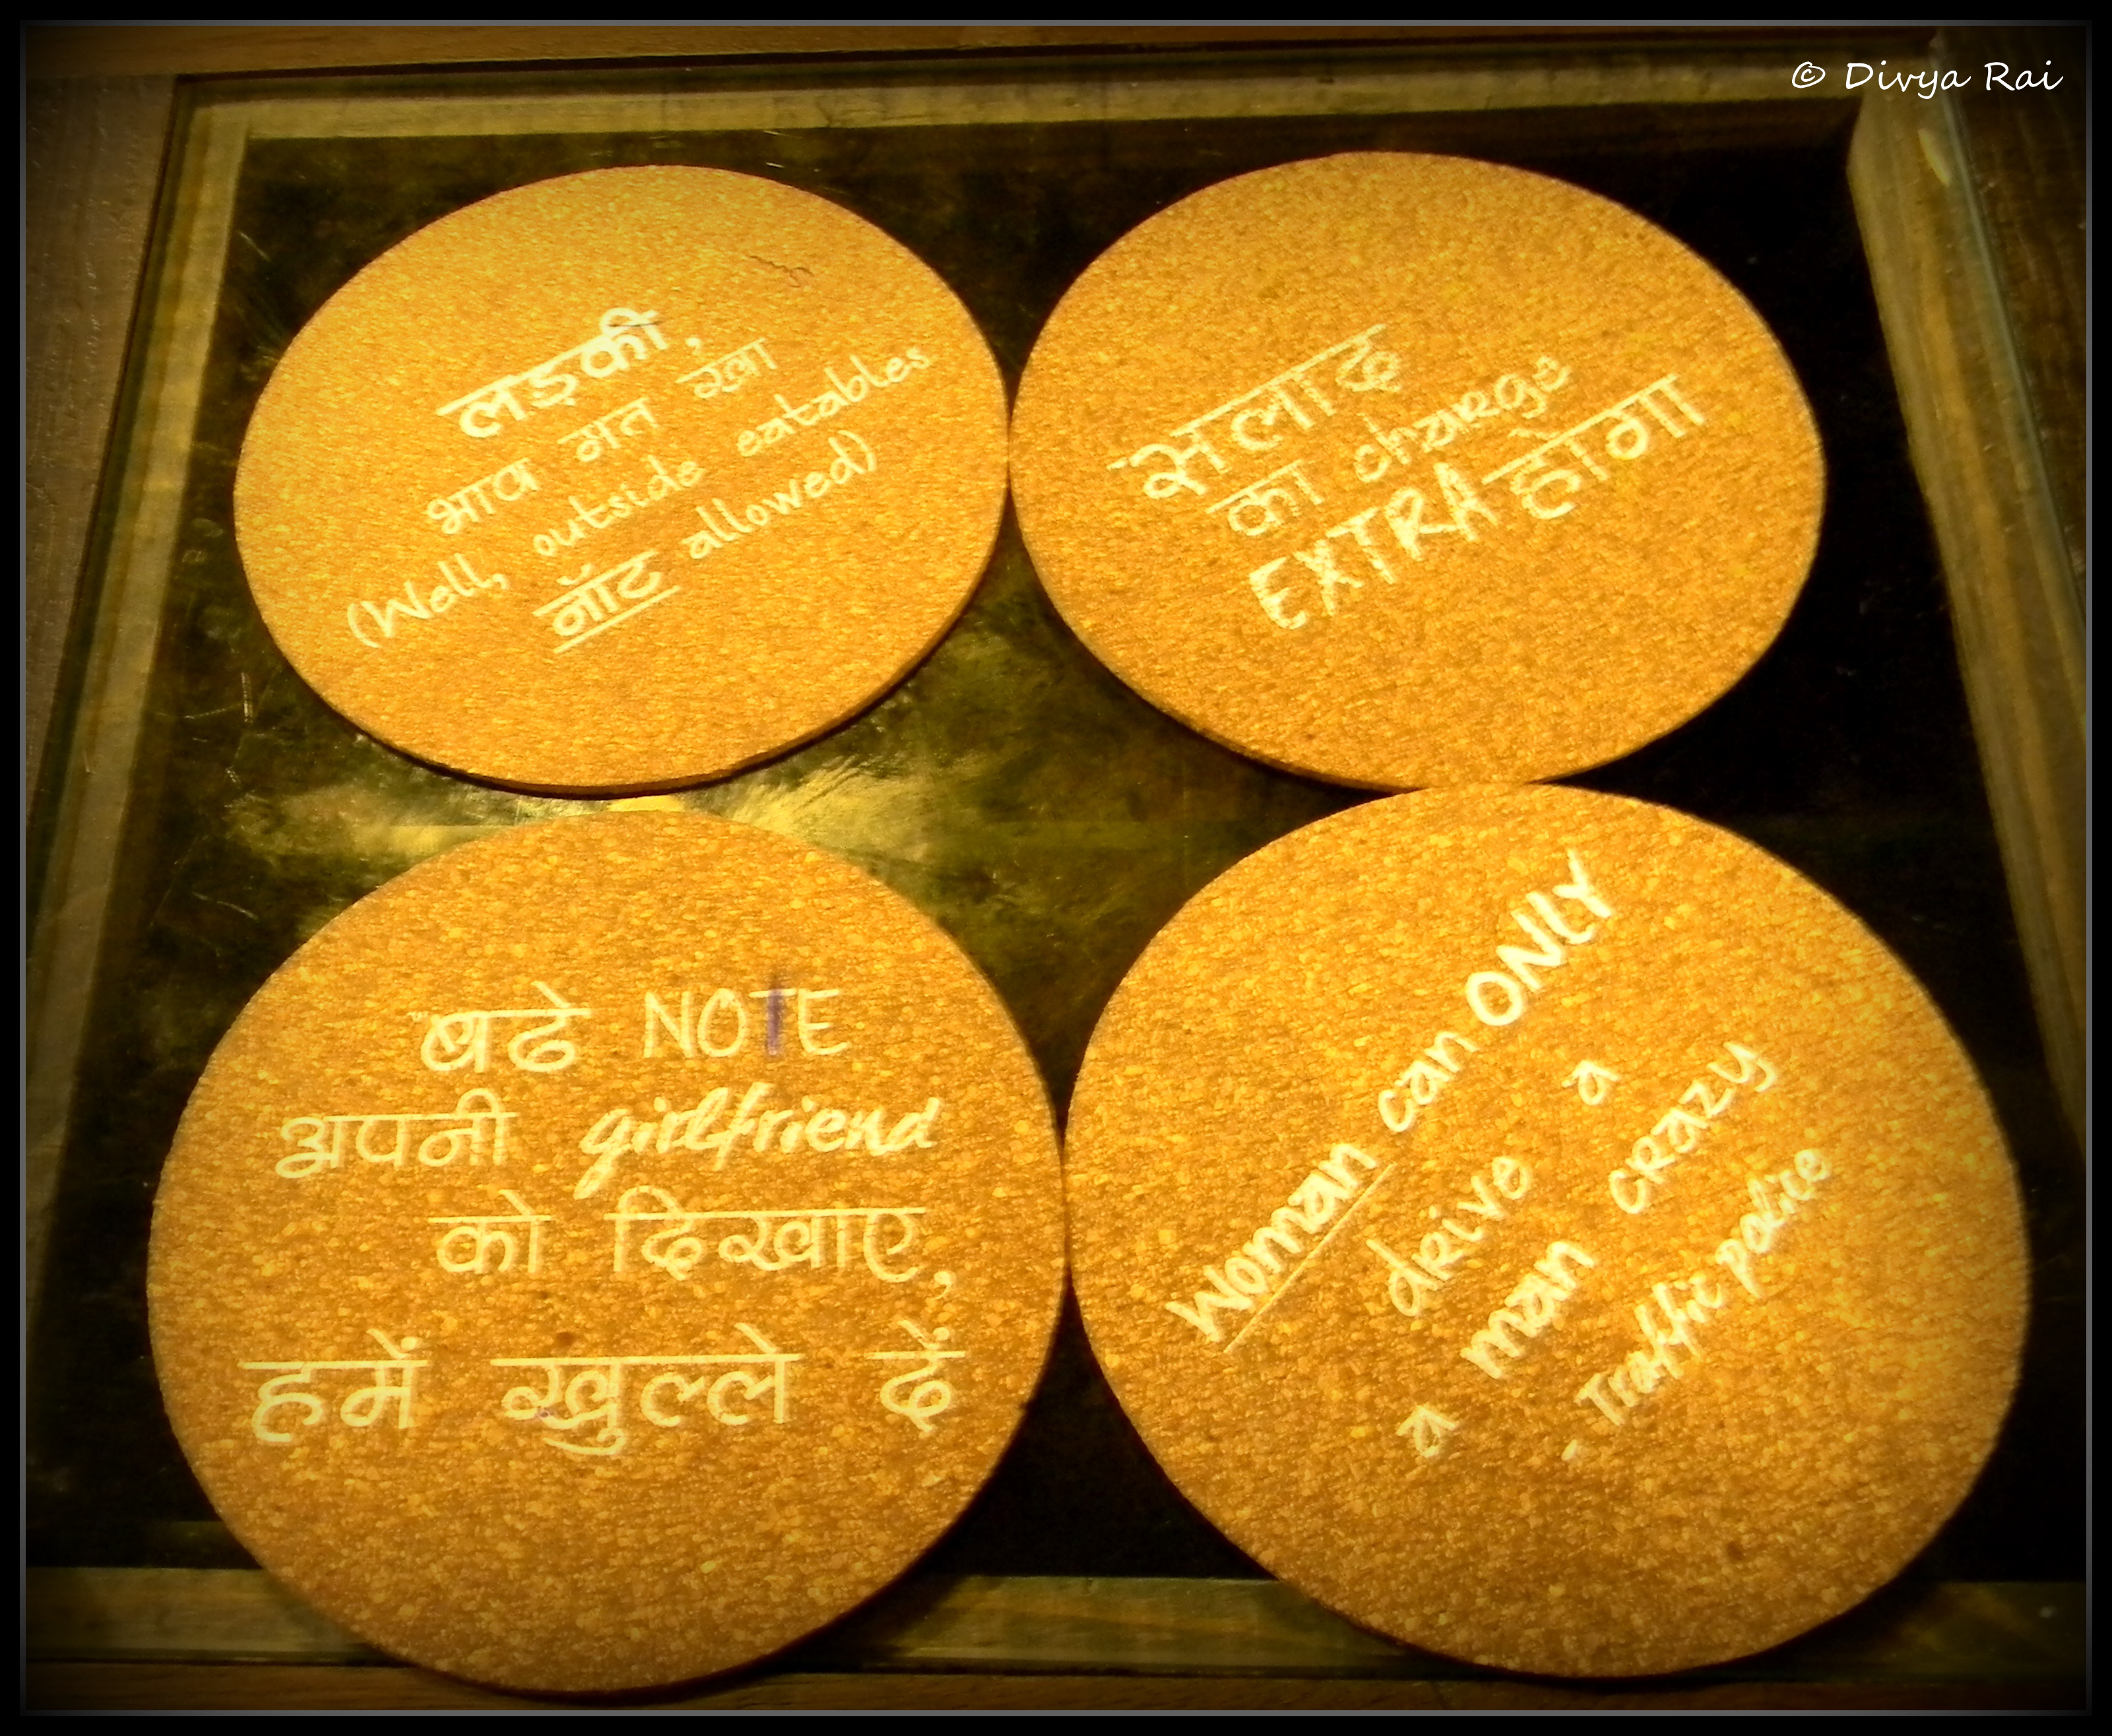 © Divya Rai
लड़की,
भाव मत खा
(Well, outside eatables
नॉट allowed)
सलाद
का charge
EXTRA होगा
बढे NOTE
अपनी girlfriend
को दिखाए,
हमें खुल्ले दें
Woman can ONLY
drive a
a man crazy
- Traffic police